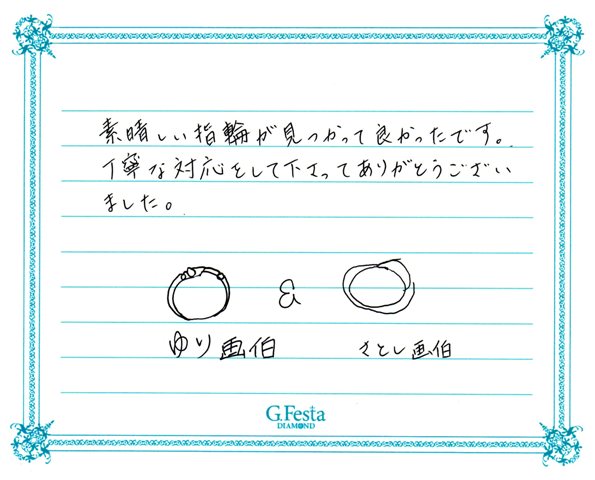 素晴しい指輪が見つかって良かったです。
丁寧な対応をして下さってありがとうござい
ました。
&
ゆり画伯 さとし画伯
G.Festa
DIAMOND